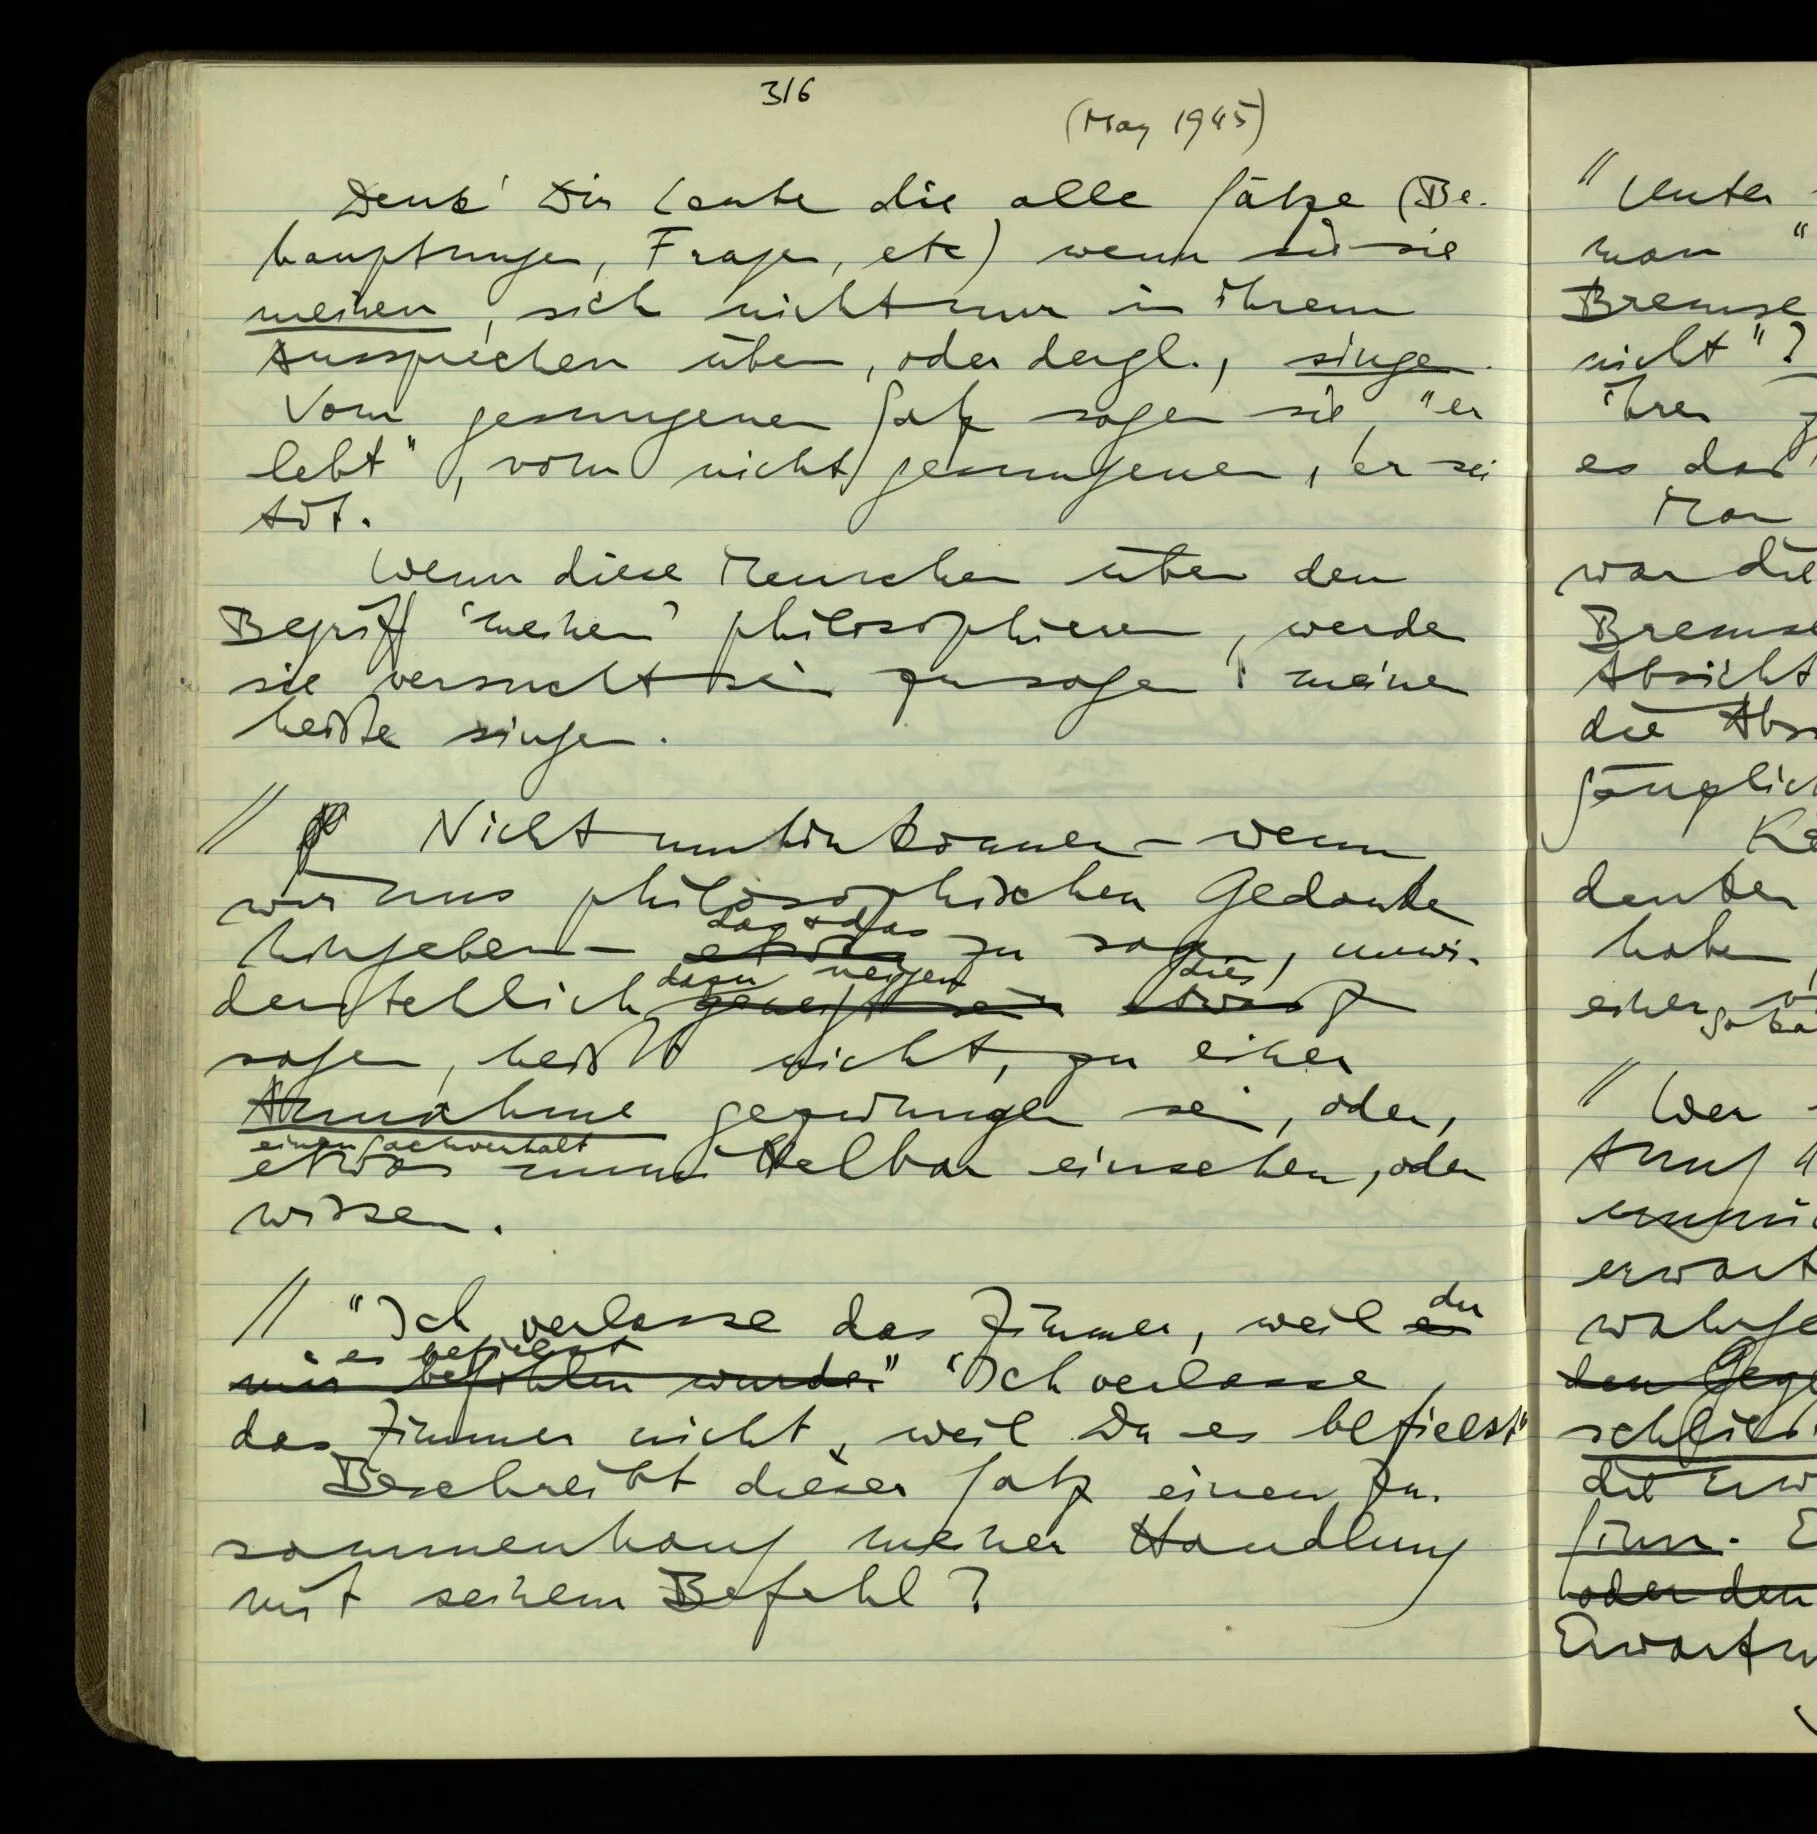 316
(May 1945)
Denk' Dir Leute die alle Sätze (Be-
hauptungen, Fragen, etc) wenn sie sie
meinen, sich nicht nur in ihrem
Aussprechen üben, oder dergl., singen.
Vom gesungenen Satz sagen sie, "er
lebt", vom nicht gesungenen, er sei
tot.
Wenn diese Menschen über den
Begriff 'meinen' philosophieren, werden
sie versucht sein zu sagen: meinen
heiße singen.
// Nicht umhinkönnen – wenn
wir uns philosophischen Gedanken
das & das
hingeben – etwas zu sagen, unwi-
dazu neigen dies
derstehlich geneigt sein etwas zu
sagen, heißt nicht, zu einer
Annahme gezwungen sein, oder,
einen Sachverhalt
etwas unmittelbar einsehen, oder
wissen.
// "Ich verlasse das Zimmer, weil er
du
es befiehlst
mir befohlen wurde." "Ich verlasse
das Zimmer nicht, weil Du es befielst"
Beschreibt dieser Satz einen Zu-
sammenhang meiner Handlung
mit seinem Befehl?
" Unter
man "
Bremse
nicht"?
ihrer
es das
Man
war die
Bremse
Absicht
die
Ke
denken
haben,
einer
// Wer
erwart
den
die
Sinn. E
oder den